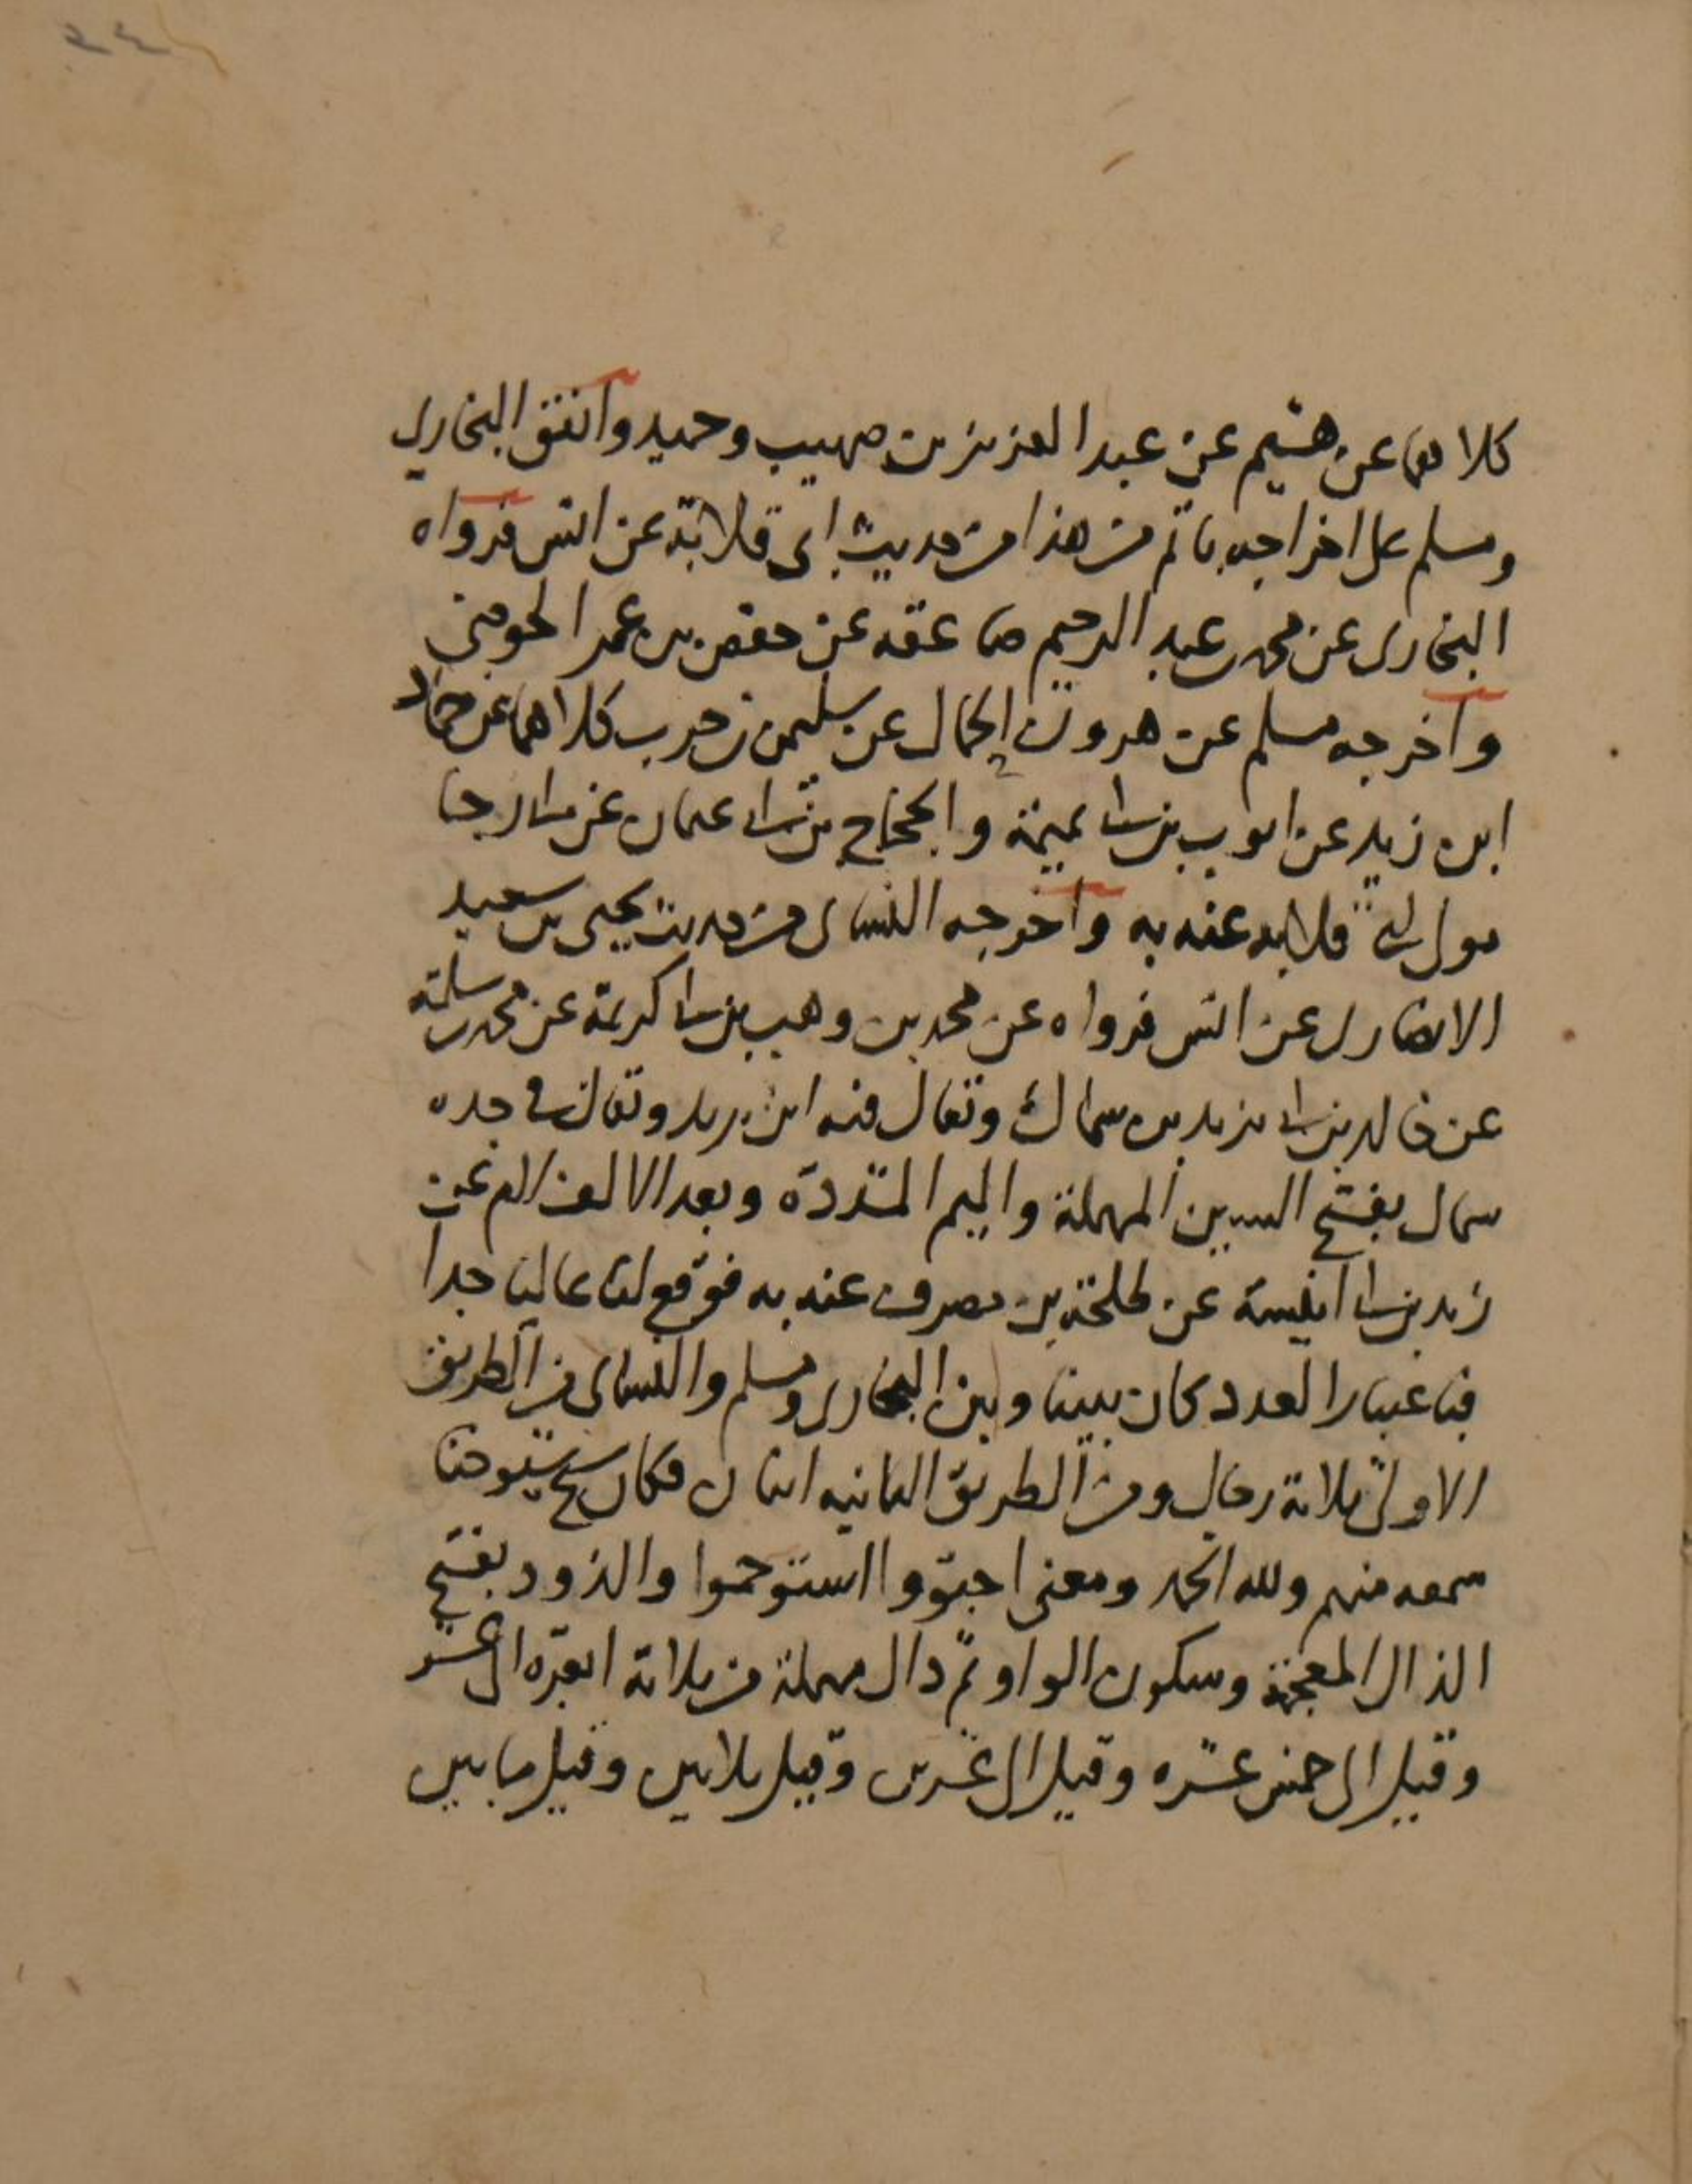 ٢٤
كلاهما عن هشيم عن عبد العزيز بن صهيب وحميد واتفق البخاري
ومسلم على اخراجه باتم من هذا من حديث ابي قلابة عن انس فرواه
البخاري عن محمد بن عبد الرحيم صاعقه عن حفص بن عمر الحوضي
واخرجه مسلم عن هرون الحمال عن سليمن بن حرب كلاهما عن حماد
ابن زيد عن ايوب بن ابي تميمة والحجاج بن ابي عثمان عن ابي رجا
مولى ابي قلابه عنه به واخرجه النساي من حديث يحيى بن سعيد
الانصاري عن انس فرواه عن محمد بن وهب بن ابي كريمة عن محمد بن سلمة
عن خالد بن ابي يزيد بن سماك ويقال فيه ابن يزيد ويقال في جده
سمال بفتح السين المهملة والميم المشددة وبعد الالف لام عن
زيد بن ابي انيسة عن طلحة بن مصرف عنه به فوقع لنا عاليا جدا
فباعتبار العدد كان بيننا وبين البخاري ومسلم والنساي في الطريق
الاولى ثلاثة رجال ومن الطريق الثانيه اثنان فكان شيخ شيوخنا
سمعه منهم ولله الحمد ومعنى اجتووا استوخموا والذود بفتح
الذال المعجمة وسكون الواو ثم دال مهملة من ثلاثة ابعرة الى عشر
وقيل الى خمس عشره وقيل الى عشرين وقيل ثلاثين وقيل ما بين